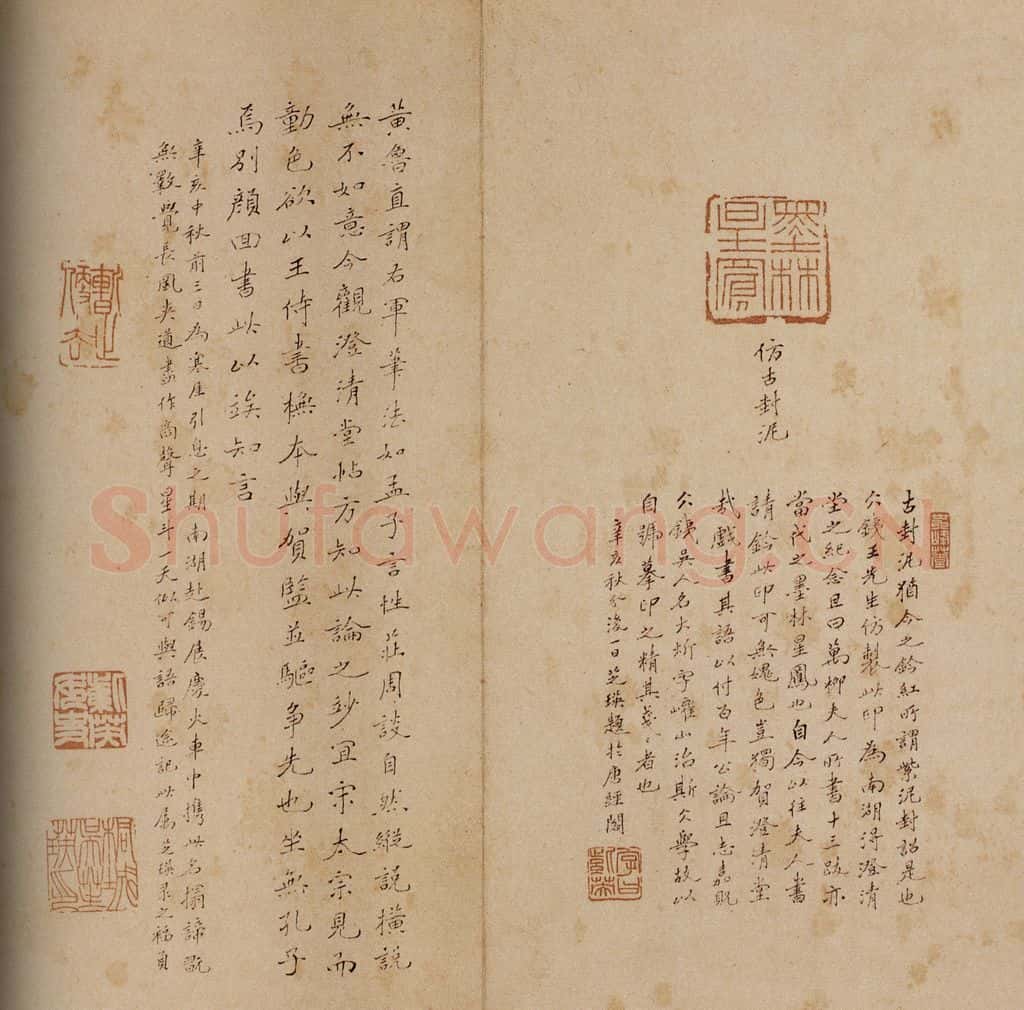 墨林星鳳
仿古封泥
古封泥猶今之鈐紅所謂紫泥封詔是也
公錢王先生仿製此印為南湖得澄清
堂之紀念且曰萬柳夫人所書十三跋亦
當代之墨林星鳳也自今以往夫人書
請鈐此印可無媿色豈獨賀澄清堂
哉戲書其語以付百年公論且志嘉貺
公錢吳人名大炘字嶊山治斯公學故以
自號摹印之精其矣者也
辛亥秋分後一日芝瑛題於唐經閣
黃魯直謂右軍筆法如孟子言性莊周談自然縱說橫說
無不如意今觀澄清堂帖方知此論之妙宜宋太宗見而
動色欲以王侍書橅本與賀監並驅爭先也坐無孔子
焉別顏回書此以竢知言
辛亥中秋前三日為寒厓引息之期南湖赴錫展慶火車中攜此名搨諦翫
無斁覺長風夾道盡作商聲星斗一天似可與語歸途記此屬芝瑛录之褚員
Shufawang.CN